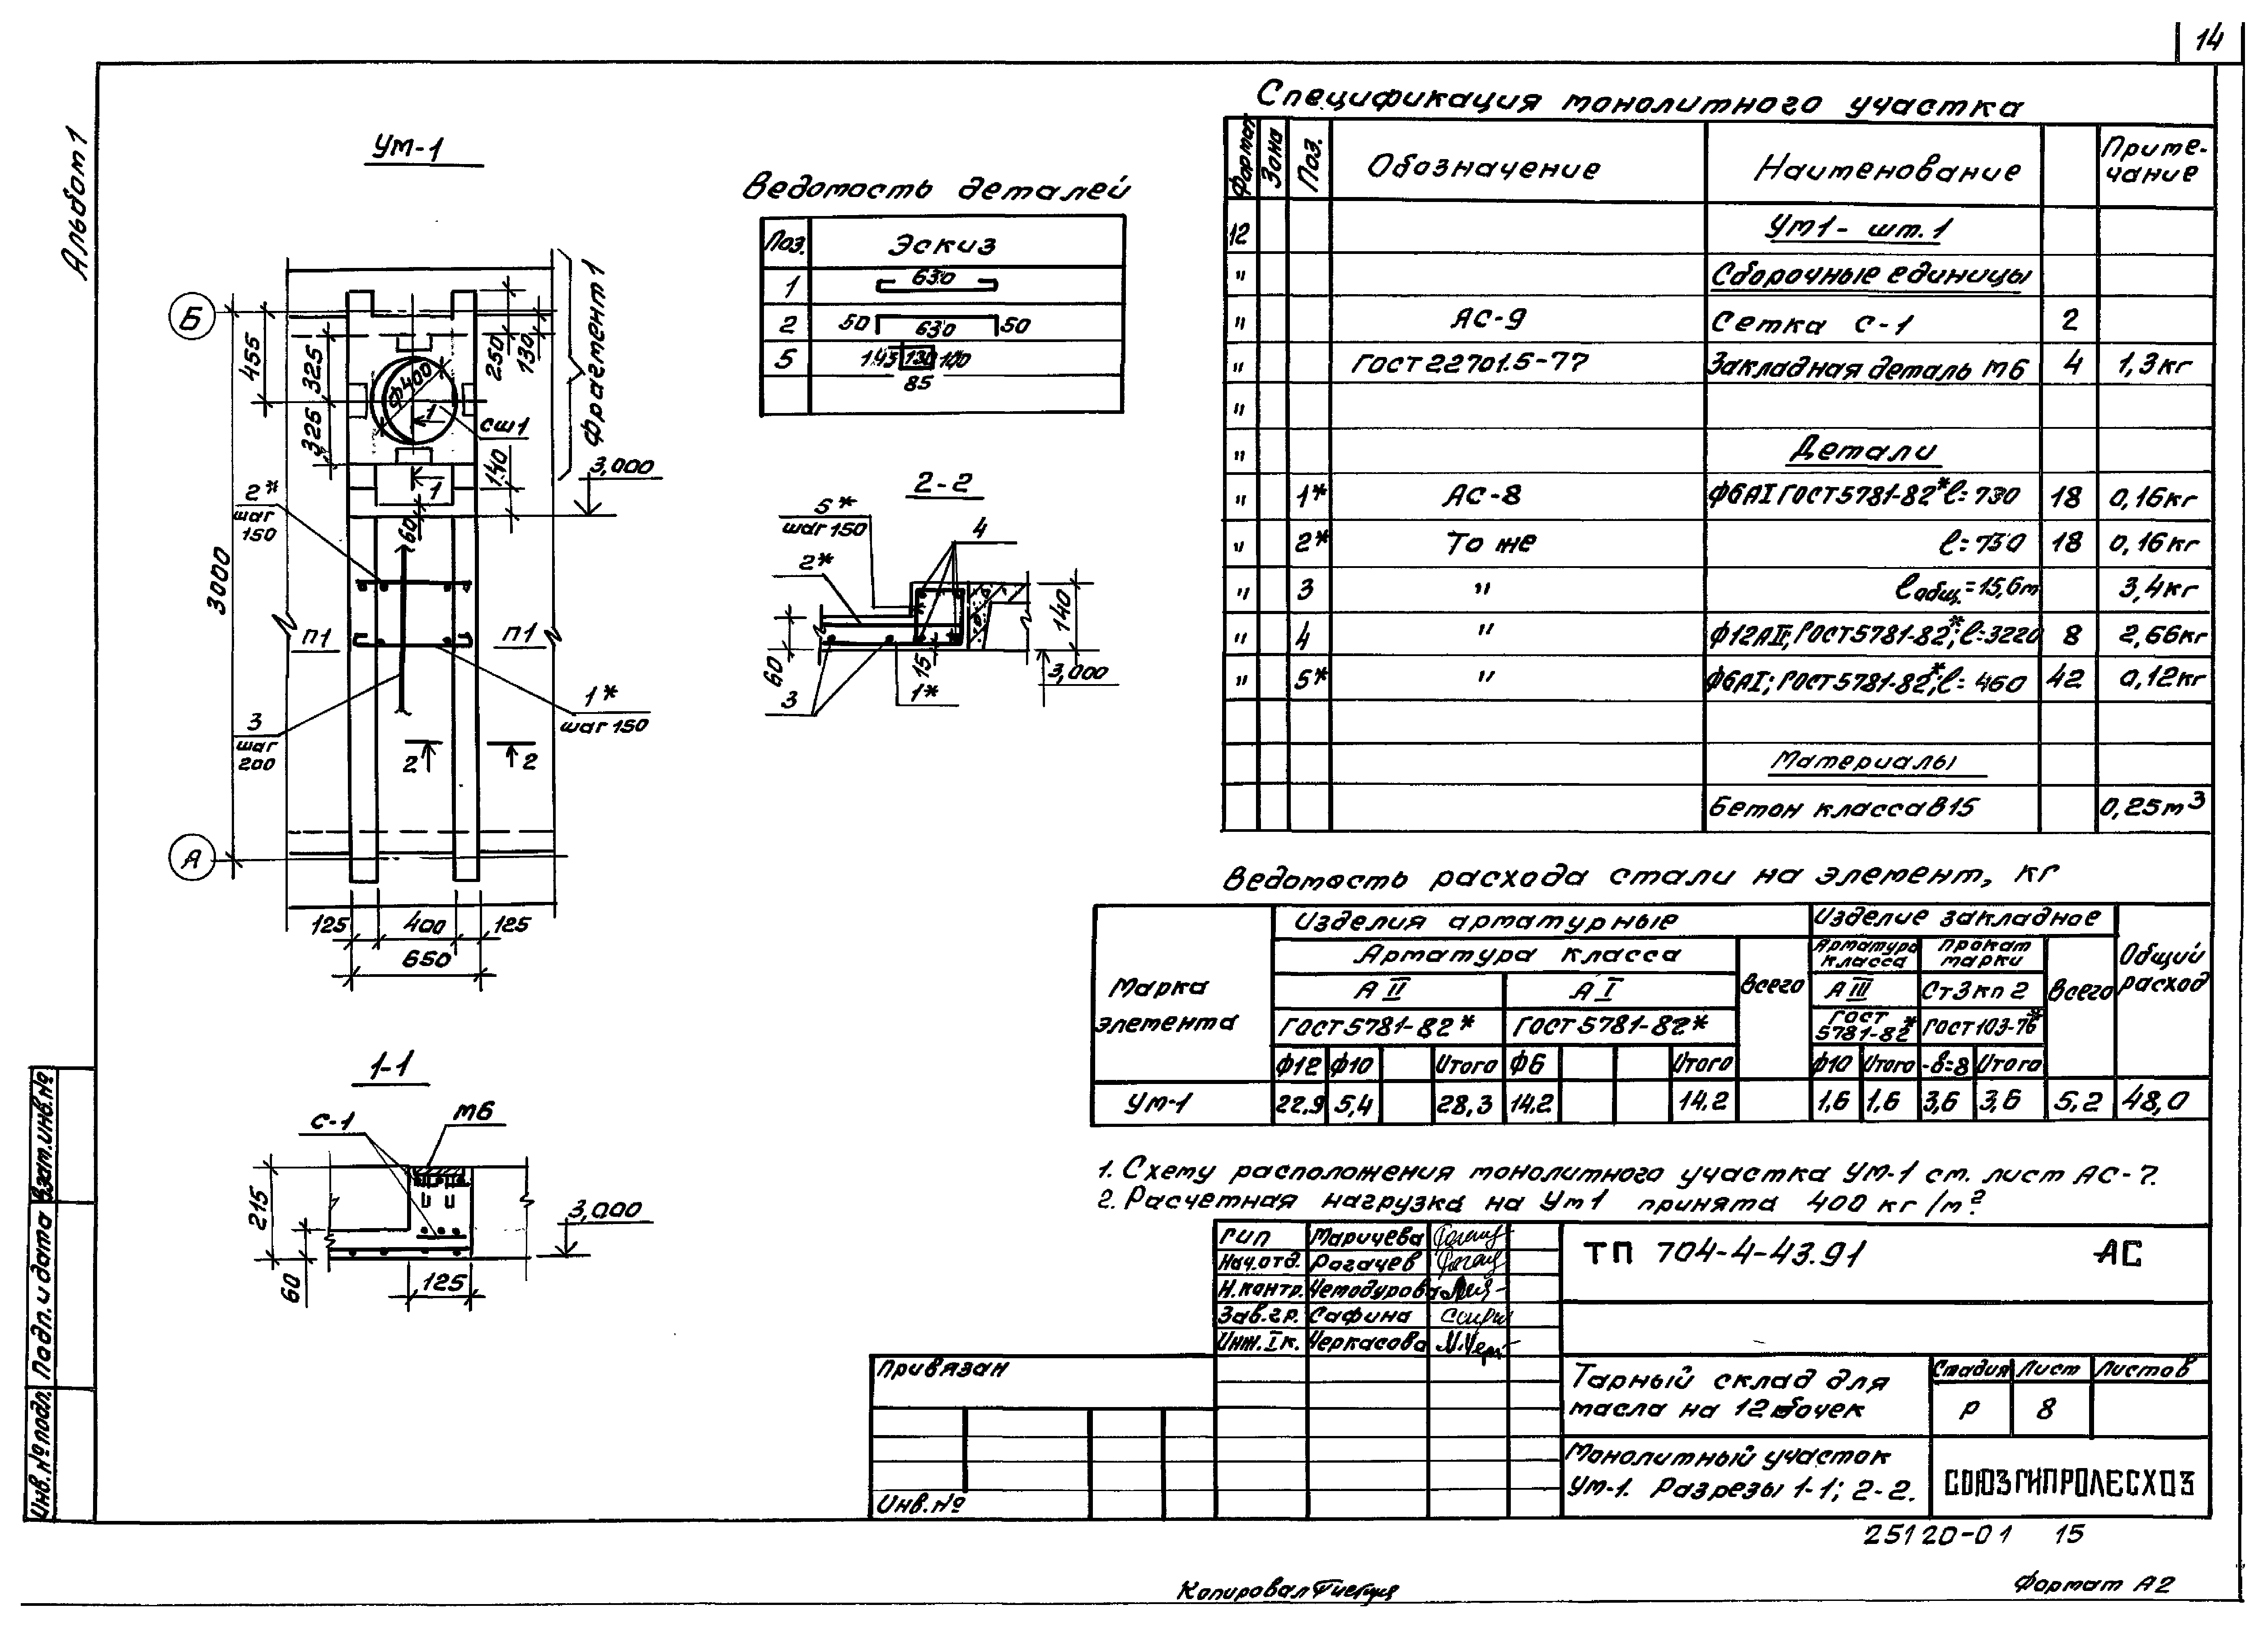 14
Альбом 1
Ум-1
Б
455
325
325
ф400
1
сш1
250
130
Фрагмент 1
3,000
140
1
60
2*
шаг
150
3000
П1
П1
3
шаг
200
1*
шаг 150
2
2
А
125
400
125
650
1-1
С-1
М6
215
60
125
3,000
Ведомость деталей
Поз.
Эскиз
1
630
2
50
630
50
5
145
130
100
85
2-2
5*
шаг 150
4
2*
140
60
15
3,000
3
1*
Спецификация монолитного участка
Формат
Зона
Поз.
Обозначение
Наименование
Приме-
чание
12 Ум1 - шт. 1
" Сборочные единицы
" АС-9 Сетка С-1 2
" ГОСТ 22701.5-77 Закладная деталь М6 4 1,3кг
"
" Детали
" 1* АС-8 ф6АI ГОСТ 5781-82* ℓ=730 18 0,16кг
" 2* То же ℓ=730 18 0,16кг
" 3 " ℓобщ.=15,6м 3,4кг
" 4 " ф12АII; ГОСТ 5781-82*; ℓ=3220 8 2,66кг
" 5* " ф6АI; ГОСТ 5781-82*; ℓ= 460 42 0,12кг
Материалы
Бетон класса В15 0,25м³
Ведомость расхода стали на элемент, кг
Марка
элемента
Изделия арматурные
Изделие закладное
Общий
расход
Арматура класса
Всего
Арматура
класса
Прокат
марки
Всего
А II
А I
А III
Ст3кп2
ГОСТ 5781-82*
ГОСТ 5781-82*
ГОСТ
5781-82*
ГОСТ 103-76*
ф12 ф10 Итого ф6 Итого ф10 Итого -в=8 Итого
Ум-1 22,9 5,4 28,3 14,2 14,2 1,6 1,6 3,6 3,6 5,2 48,0
1. Схему расположения монолитного участка Ум-1 см. лист АС-7.
2. Расчетная нагрузка на Ум1 принята 400 кг/м²
ГИП Маричева
Нач.отд. Рогачев
Н.контр. Чемодурова
Зав.гр. Сафина
Инж.I к. Черкасова
ТП 704-4-43.91 АС
Тарный склад для
масла на 12 бочек
Стадия Лист Листов
Р 8
Монолитный участок
Ум-1. Разрезы 1-1; 2-2.
СОЮЗГИПРОЛЕСХОЗ
Привязан
Инв.№
Взам.инв.№
Подп. и дата
Инв.№ подл.
25120-01 15
Копировал
Формат А2